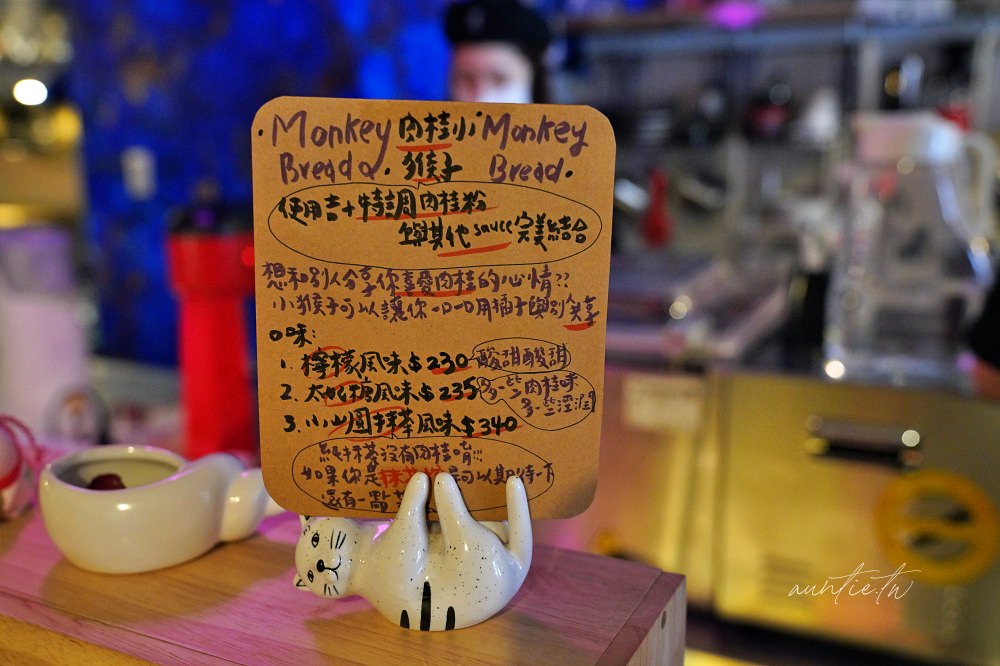 Monkey 肉桂小 Monkey
Bread. 猴子 Bread.
使用吉+特調肉桂粉
與其他sauce完美結合
想和別人分享你喜愛肉桂的心情??
小猴子可以讓你一口一口用插子與別分享
口味:
1. 檸檬風味$230 酸甜酸甜
2. 太妃糖風味$235 多一些肉桂味
多一些溼潤
3. 小山園抹茶風味$340
純抹茶沒有肉桂唷!!!
如果你是抹茶 是可以期待一下
還有一點
auntie.tw